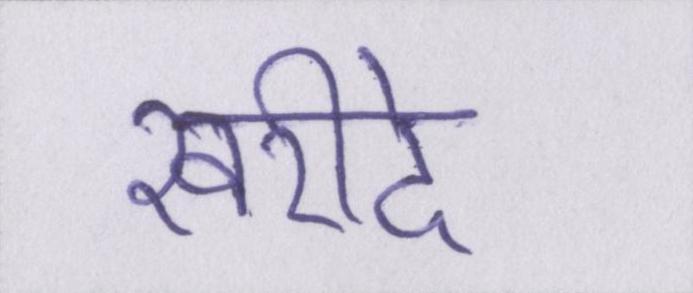 खरीदे